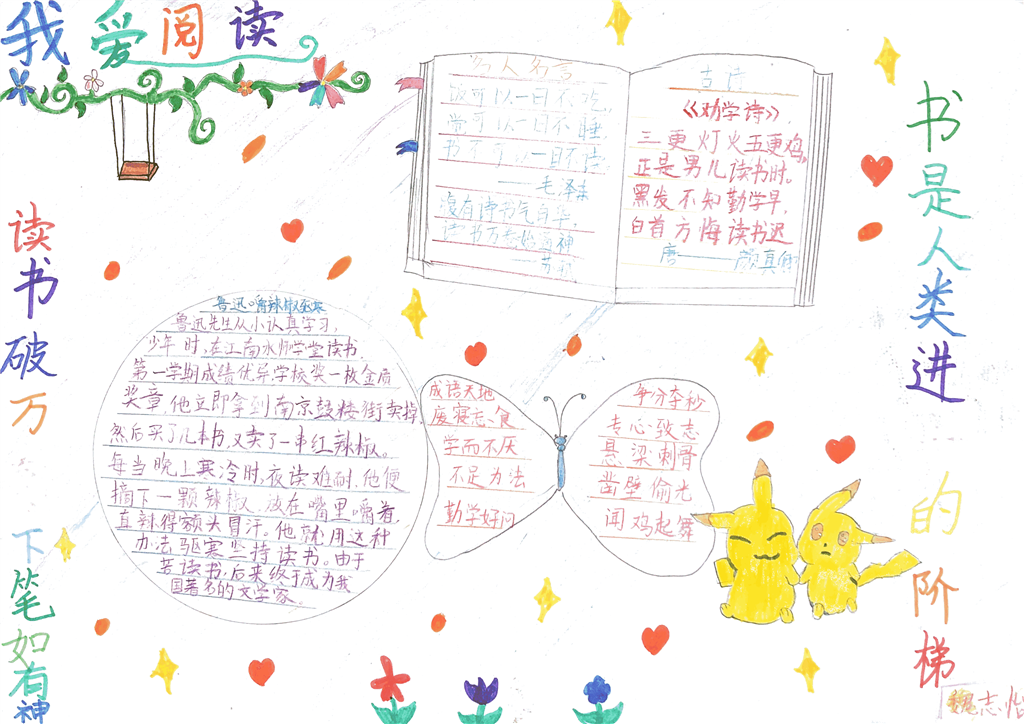 我爱阅读
名人名言
饭可以一日不吃,
觉可以一日不睡,
书不可以一日不读,
——毛泽东
腹有诗书气自华,
读书万卷始通神
——苏轼
古诗
《劝学诗》,
三更灯火五更鸡,
正是男儿读书时。
黑发不知勤学早,
白首方悔读书迟
唐——颜真卿
读书破万
下笔如有神
书是人类进
的阶梯
鲁迅。嚼辣椒驱寒
鲁迅先生从小认真学习,
少年时,在江南水师学堂读书,
第一学期成绩优异学校奖一枚金质
奖章,他立即拿到南京鼓楼街卖掉,
然后买了几本书,又卖了一串红辣椒。
每当晚上寒冷时,夜读难耐,他便
摘下一颗辣椒,放在嘴里嚼着,
直辣得额头冒汗。他就用这种
办法驱寒坚持读书。由于
苦读书,后来终于成为我
国著名的文学家。
成语天地
废寝忘食
学而不厌
不足为法
勤学好问
争分夺秒
专心致志
悬梁刺骨
凿壁偷光
闻鸡起舞
魏志怡